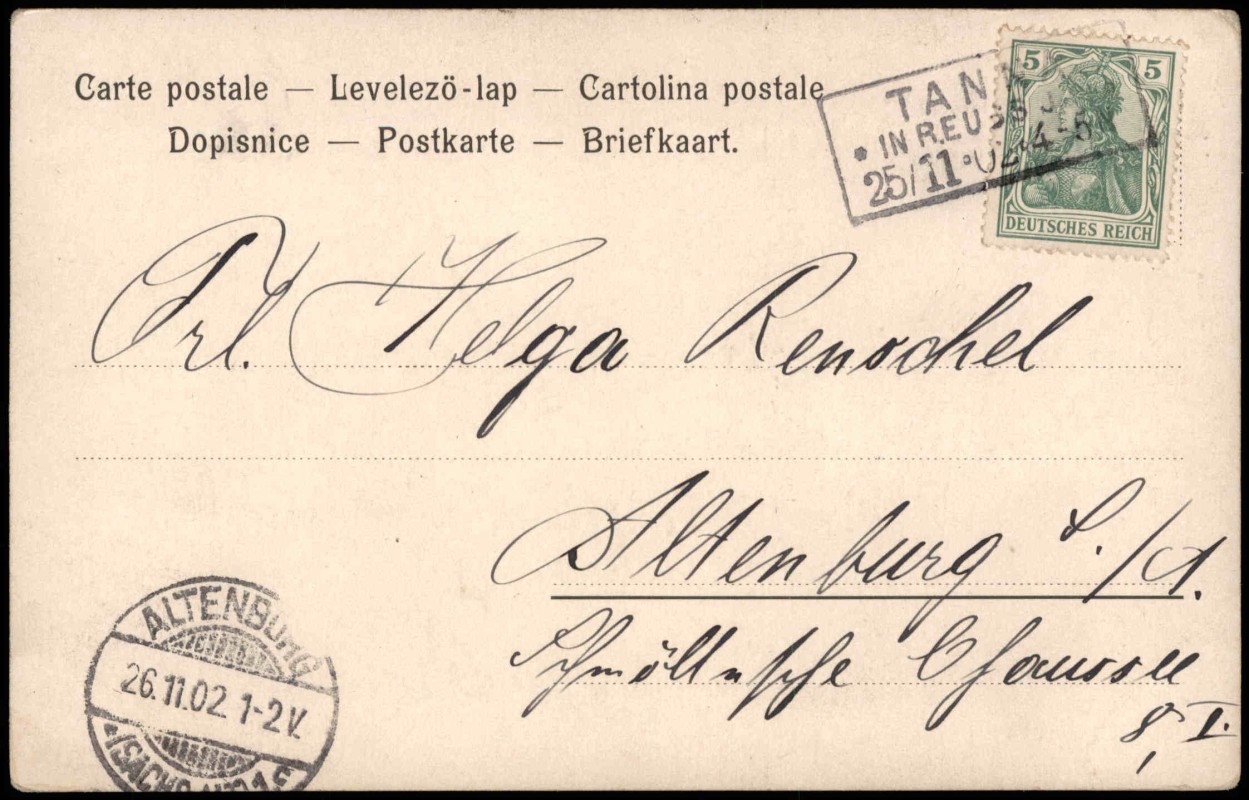 Carte postale — Levelezö-lap — Cartolina postale
Dopisnice — Postkarte — Briefkaart.
TAN
• IN REUSS
25/11·02·4-5
5 5
DEUTSCHES REICH
Frl. Helga Renschel
Altenburg S./A.
Schmölln'sche Chaussee
8, I.
ALTENBURG
26.11.02. 1-2V.